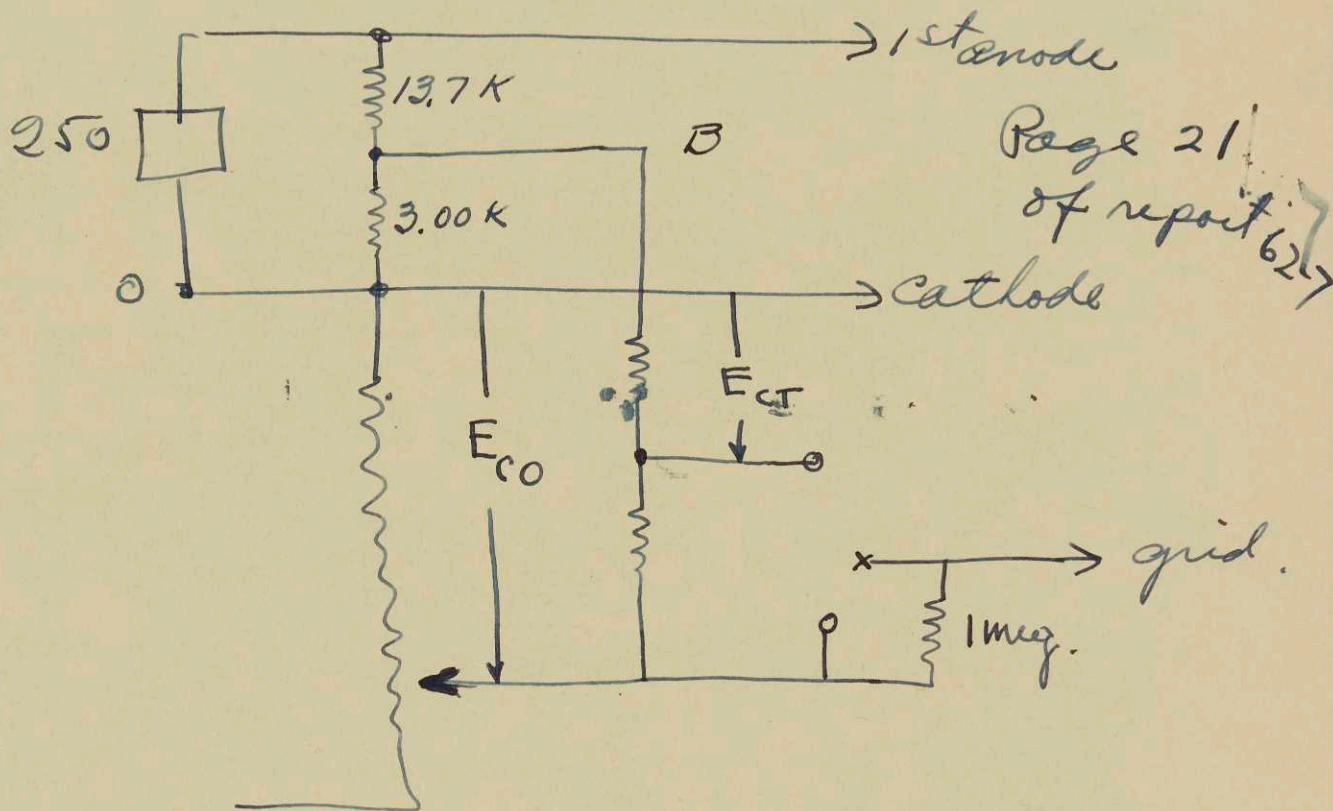 1st anode
13.7 K
250
B
Page 21
of report 62
3.00 K
0
Cathode
E CT
E CO
grid.
1 meg.